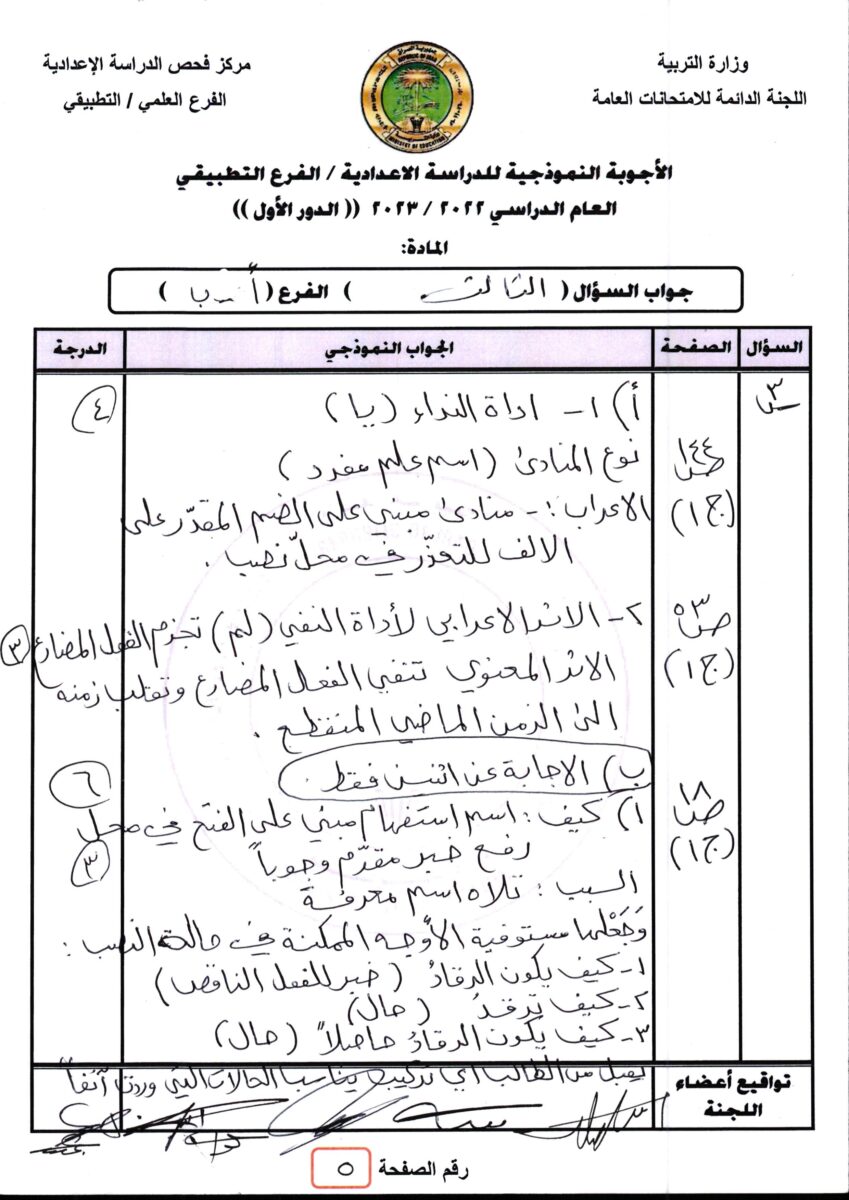 وزارة التربية
اللجنة الدائمة للامتحانات العامة
مركز فحص الدراسة الإعدادية
الفرع العلمي / التطبيقي
REPUBLIC OF IRAQ
MINISTRY OF EDUCATION
الأجوبة النموذجية للدراسة الاعدادية / الفرع التطبيقي
العام الدراسي ٢٠٢٢ / ٢٠٢٣ (( الدور الأول ))
المادة:
جواب السؤال ( الثالث ) الفرع ( أ - ب )
السؤال الصفحة الجواب النموذجي الدرجة
س٣ أ) ١- اداة النداء (يا) ٤
ص١٤٤ نوع المنادى (اسم علم مفرد)
(ج١) الاعراب :- منادى مبني على الضم المقدّر على
الالف للتعذّر في محلّ نصب .
ص٥٣ ٢- الاثر الاعرابي لأداة النفي (لم) تجزم الفعل المضارع ٣
(ج١) الاثر المعنوي تنفي الفعل المضارع وتقلب زمنه
الى الزمن الماضي المنقطع .
ب) الاجابة عن اثنين فقط . ٦
ص١٨ ١) كيف : اسم استفهام مبني على الفتح في محل
(ج١) رفع خبر مقدّم وجوباً ٣
السبب : تلاه اسم معرفة
وَجَعْلها مستوفية الأوجه الممكنة في حالة النصب :
١- كيف يكون الرقادُ (خبر للفعل الناقص)
٢- كيف ترقدُ (حال)
٣- كيف يكون الرقادُ حاصلاً (حال)
يقبل من الطالب أي تركيب يناسب الحالات التي وردت آنفاً
تواقيع أعضاء
اللجنة
رقم الصفحة ٥